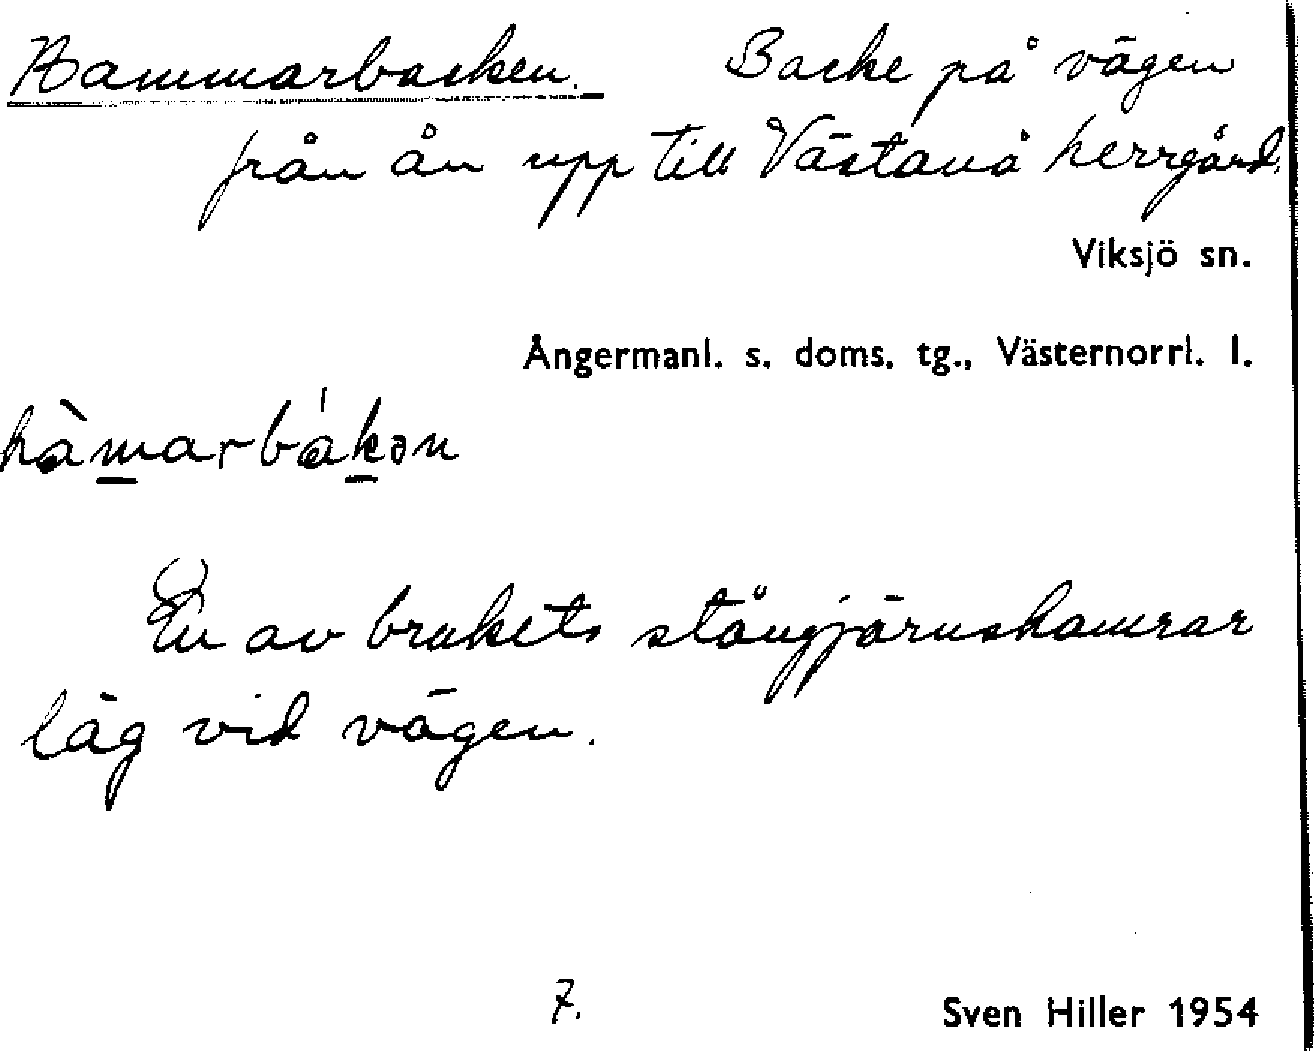 Hammarbacken. Backe på vägen
från ån upp till Västanå herrgård.
Viksjö sn.
Ångermanl. s. doms. tg., Västernorrl. l.
hàmarbák̀ən
En av brukets stångjärnshamrar
låg vid vägen.
7.
Sven Hiller 1954